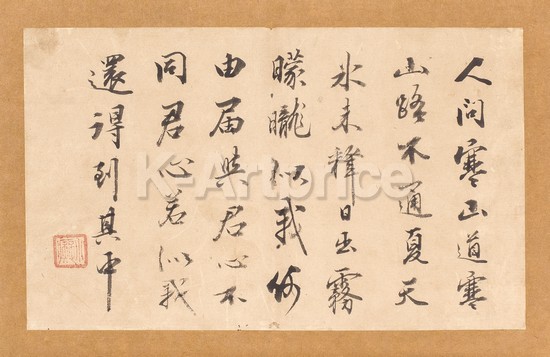 人問寒山道寒
山路不通夏天
氷未釋日出霧
曚曨似我何
由届與君心不
同君心若似我
還得到其中
K-Artprice